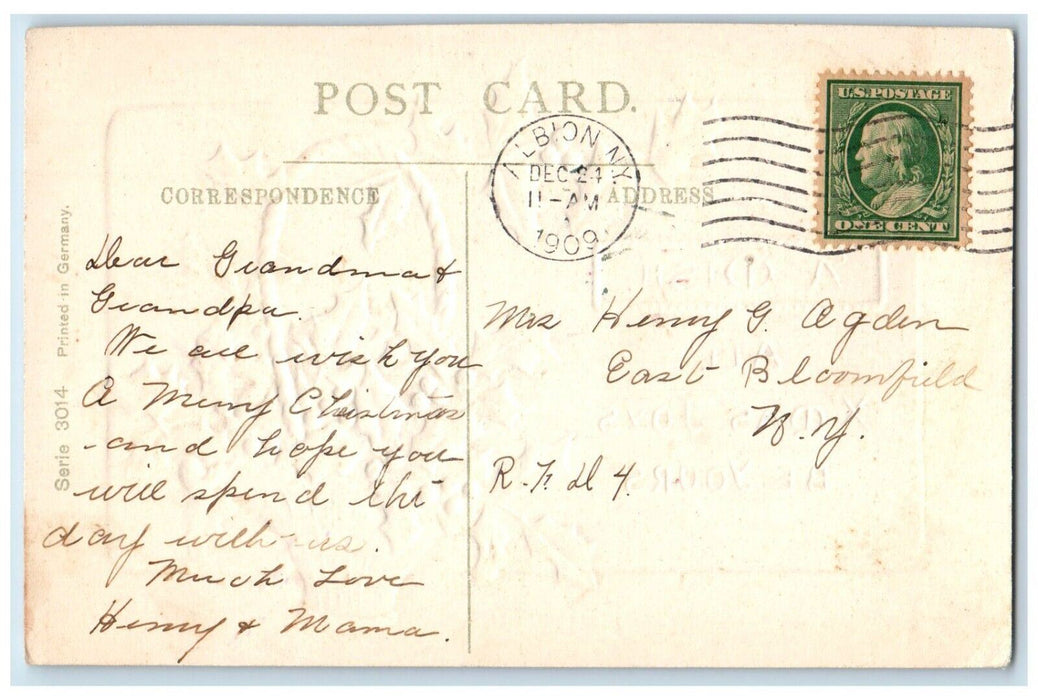 POST CARD.
U.S. POSTAGE
ONE CENT
ALBION N.Y.
DEC 24
11-AM
1909
CORRESPONDENCE
ADDRESS
Serie 3014 Printed in Germany.
Dear Grandma &
Grandpa.
We all wish you
A Merry Christmas
and hope you
will spend the
day with us.
Much Love
Henry & Mama.
Mrs Henry G. Ogden
East Bloomfield
N.Y.
R.F.D 4.